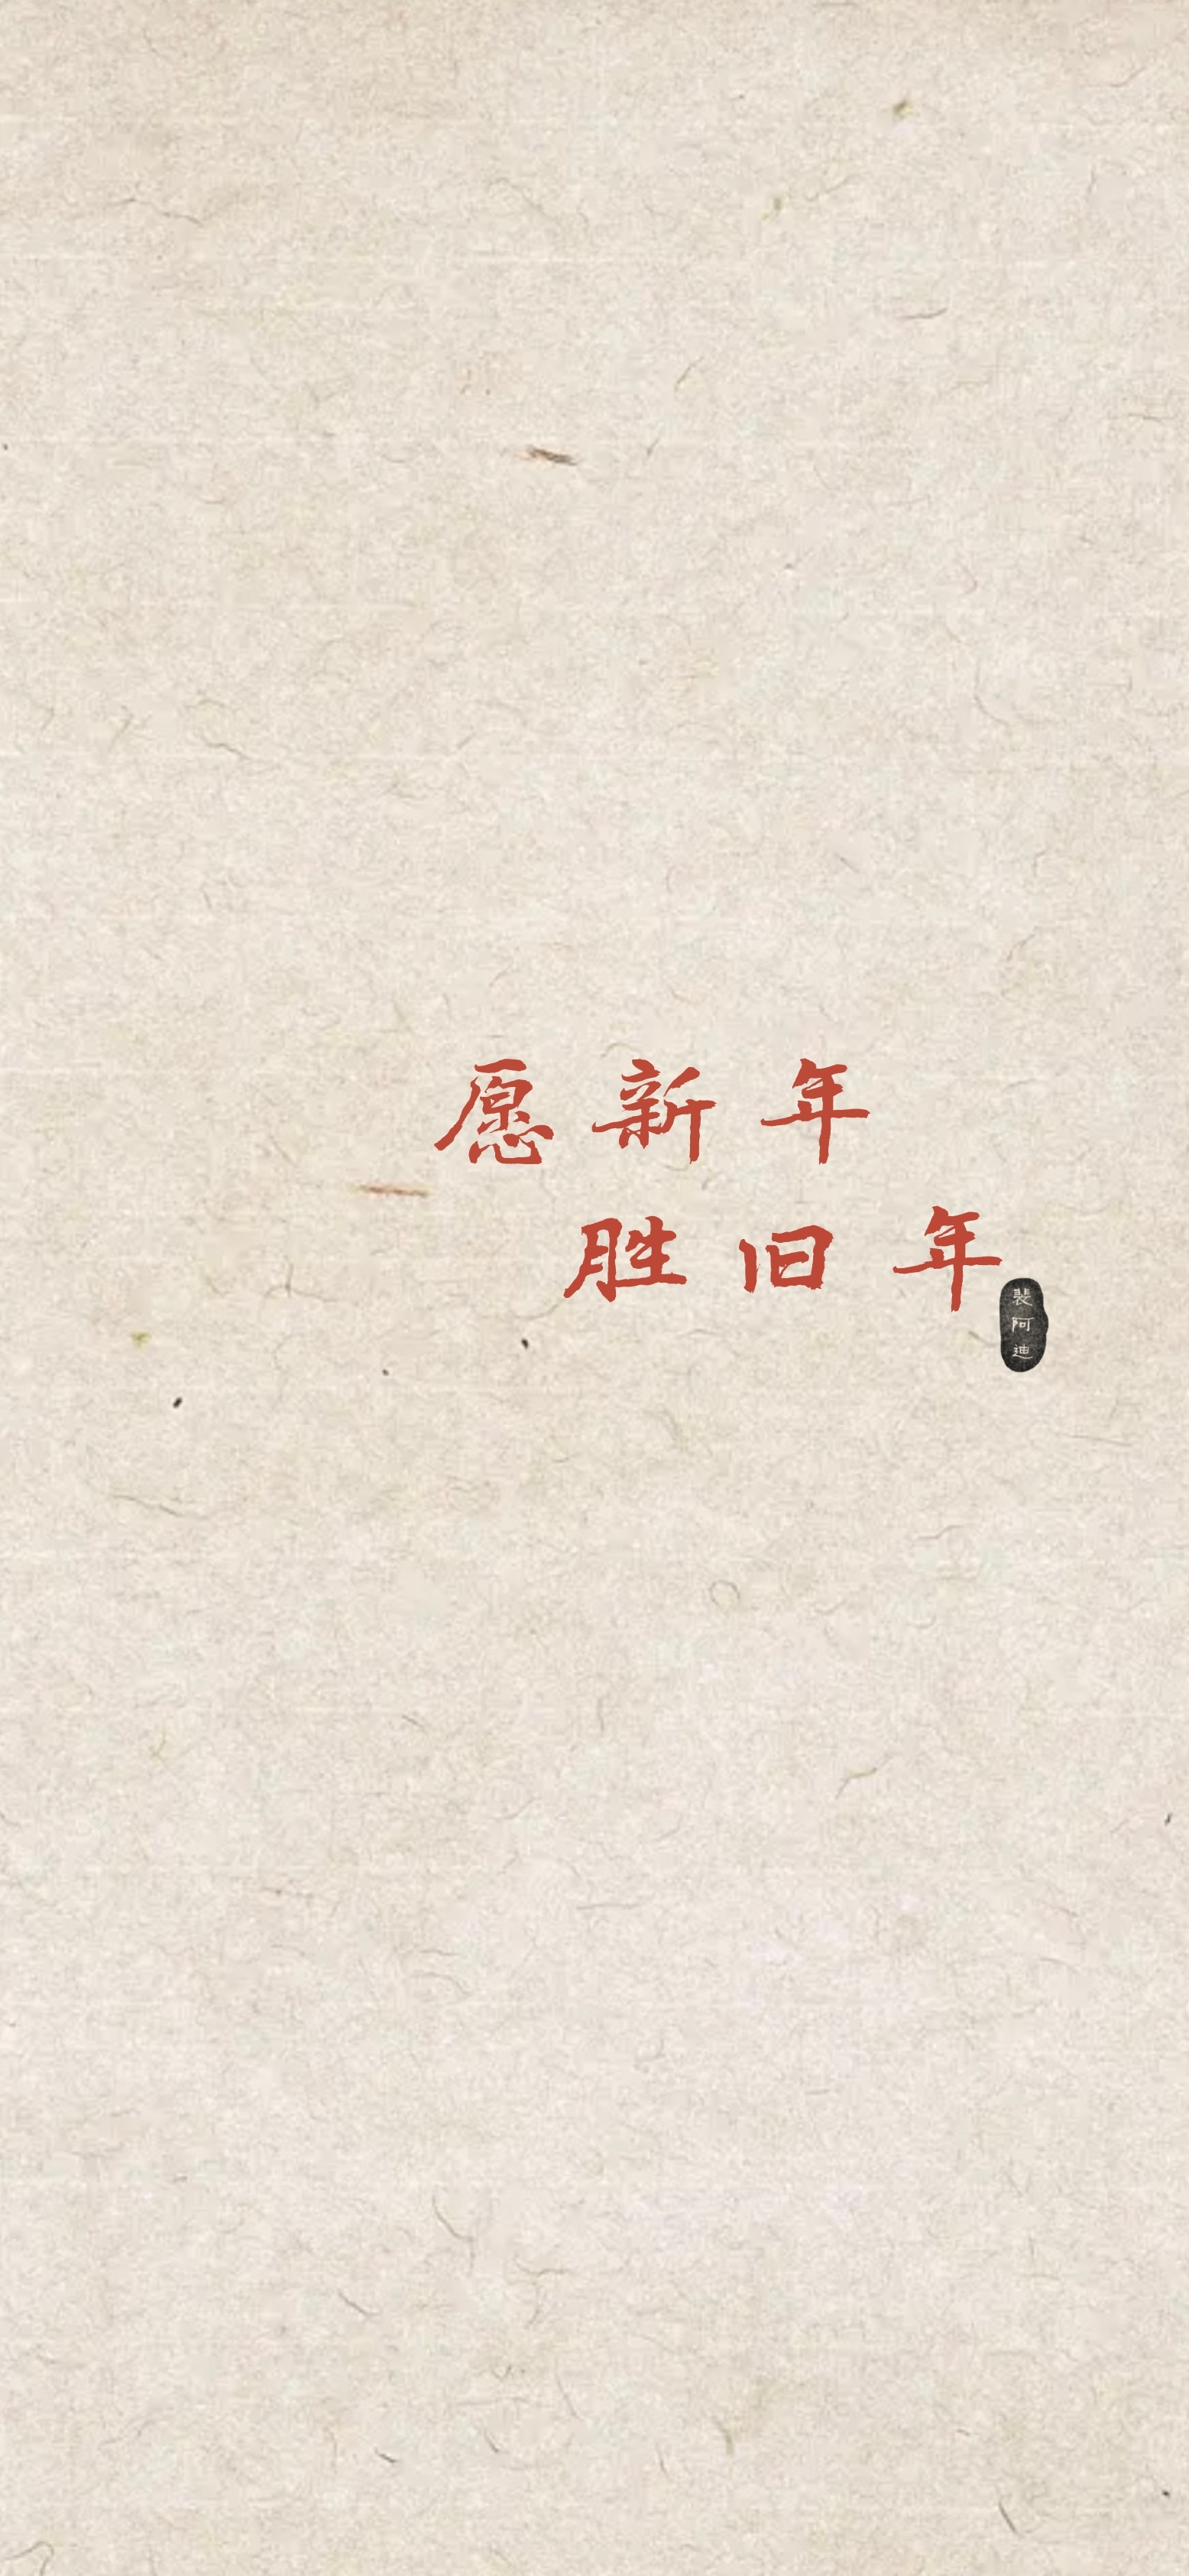 愿新年
胜旧年
裴阿迪